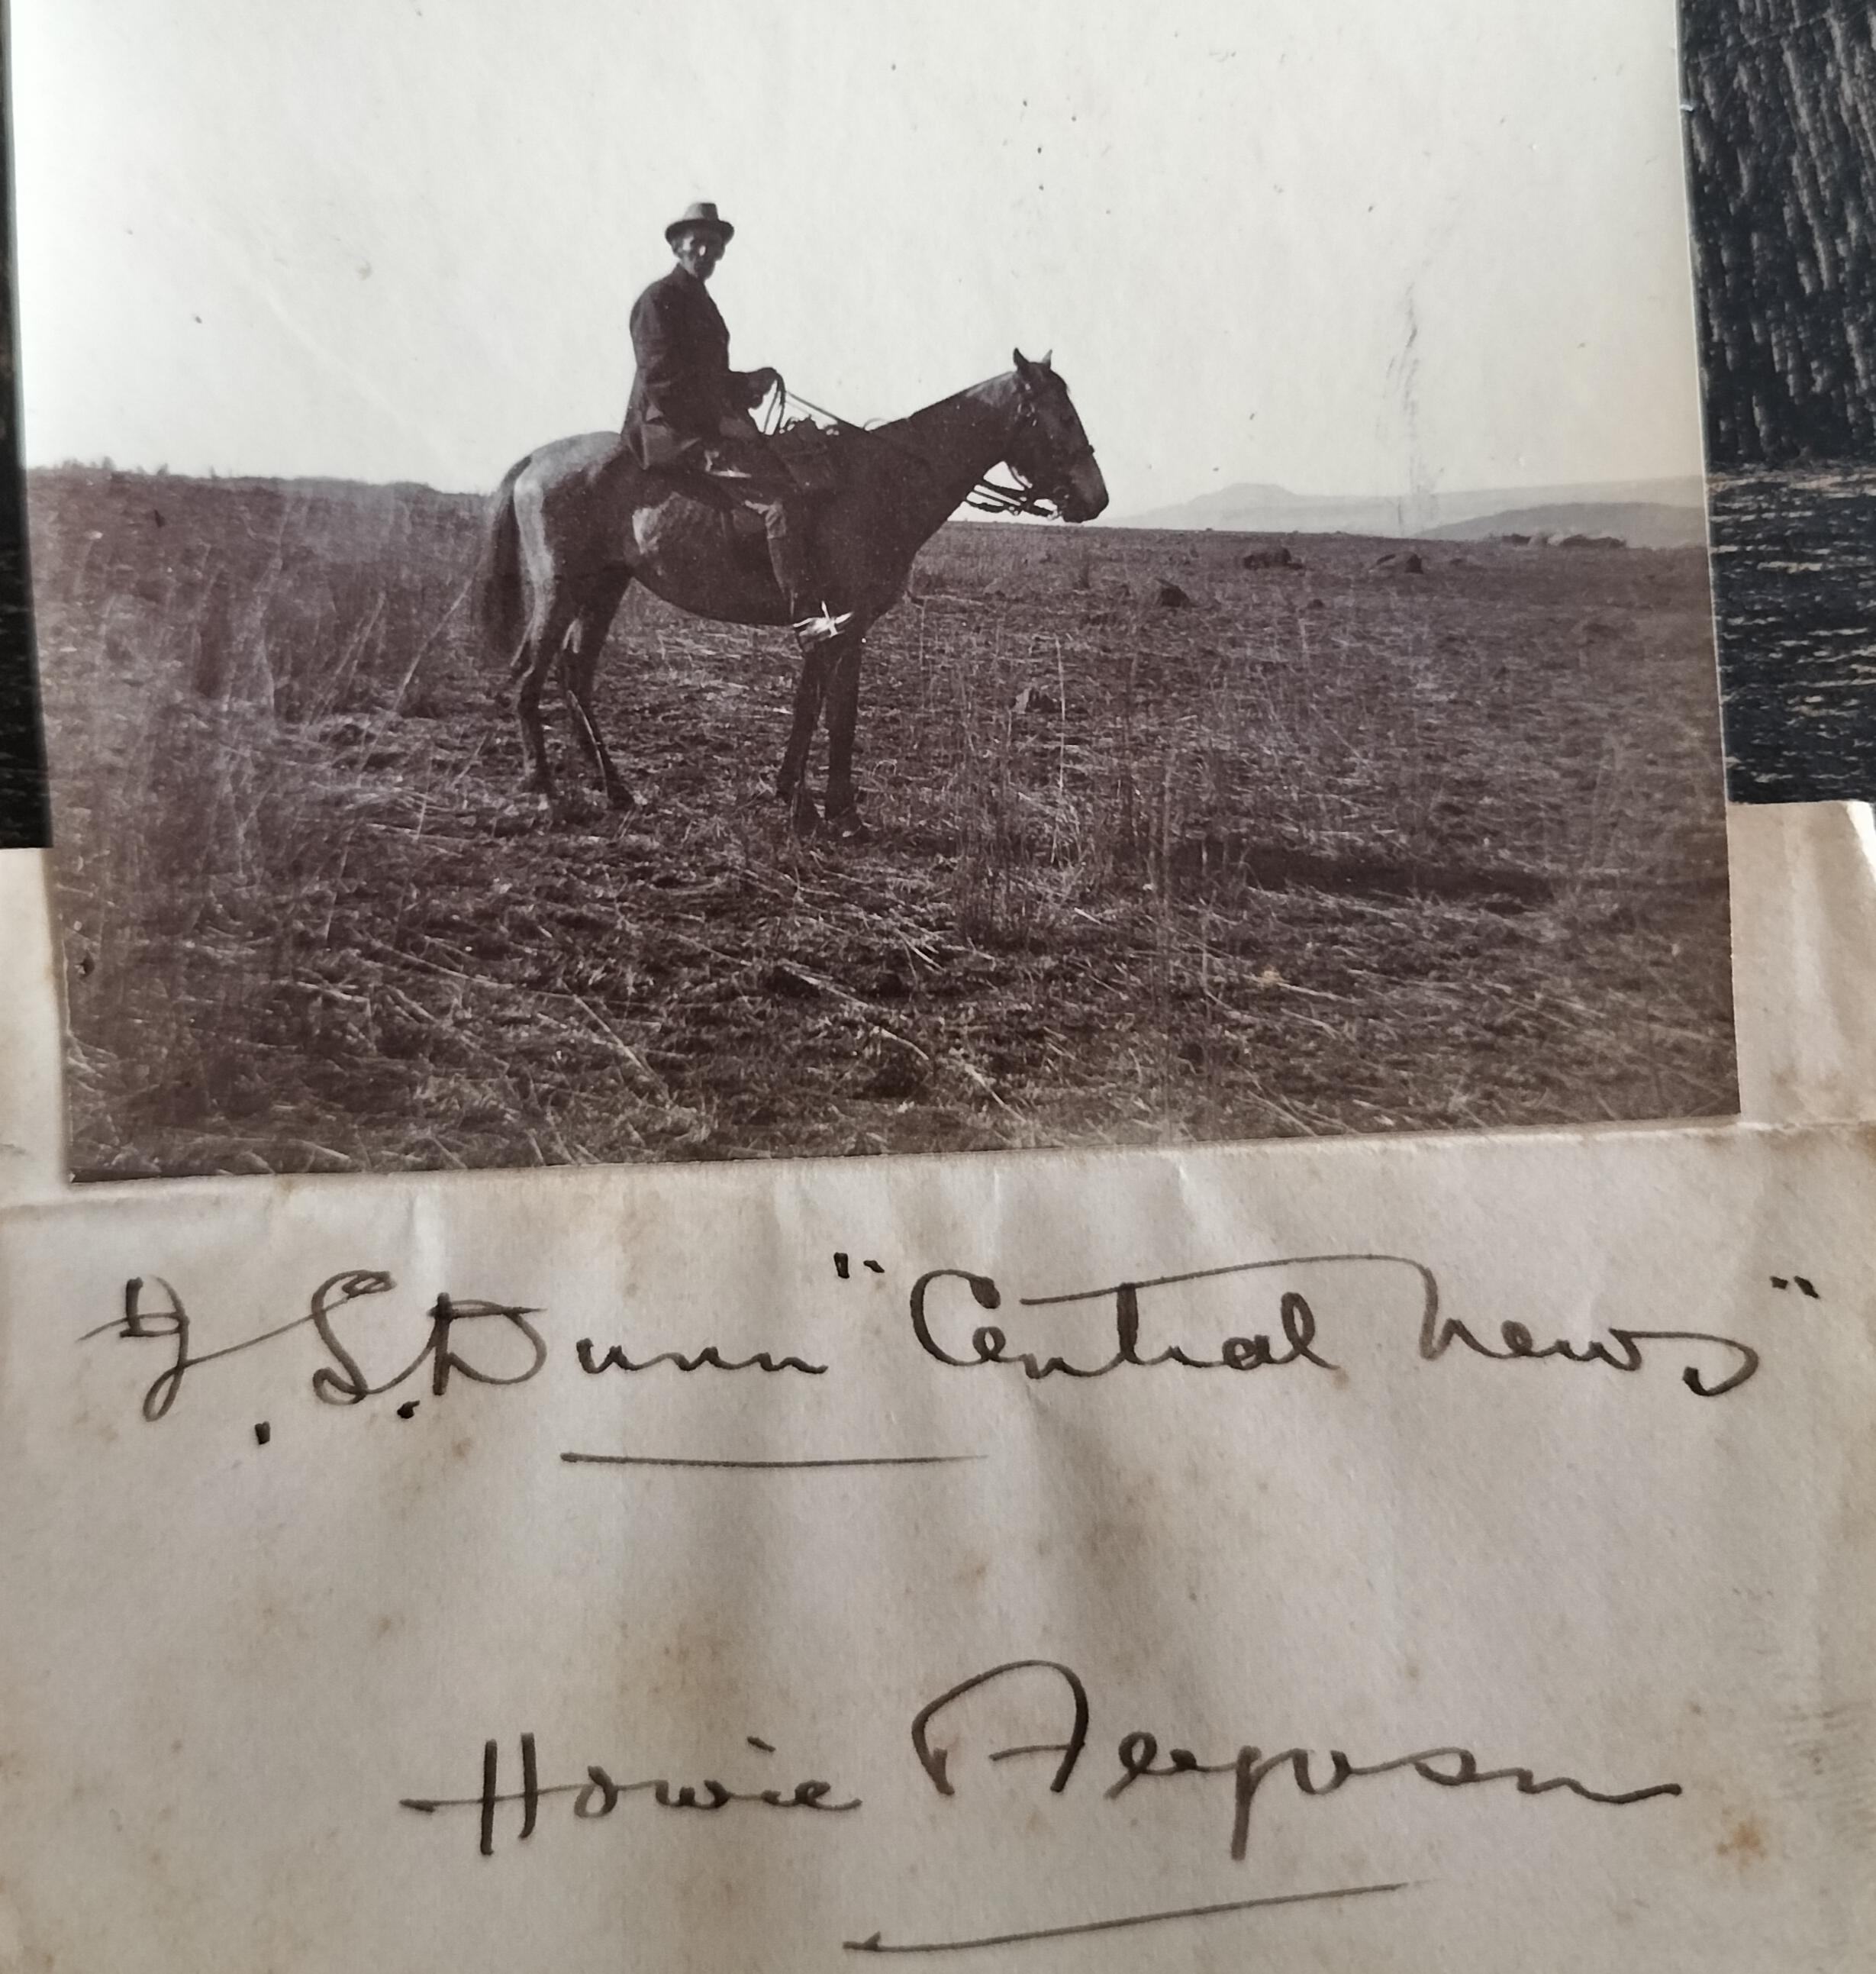 F. S. Dunn "Central News"
Howie Ferguson